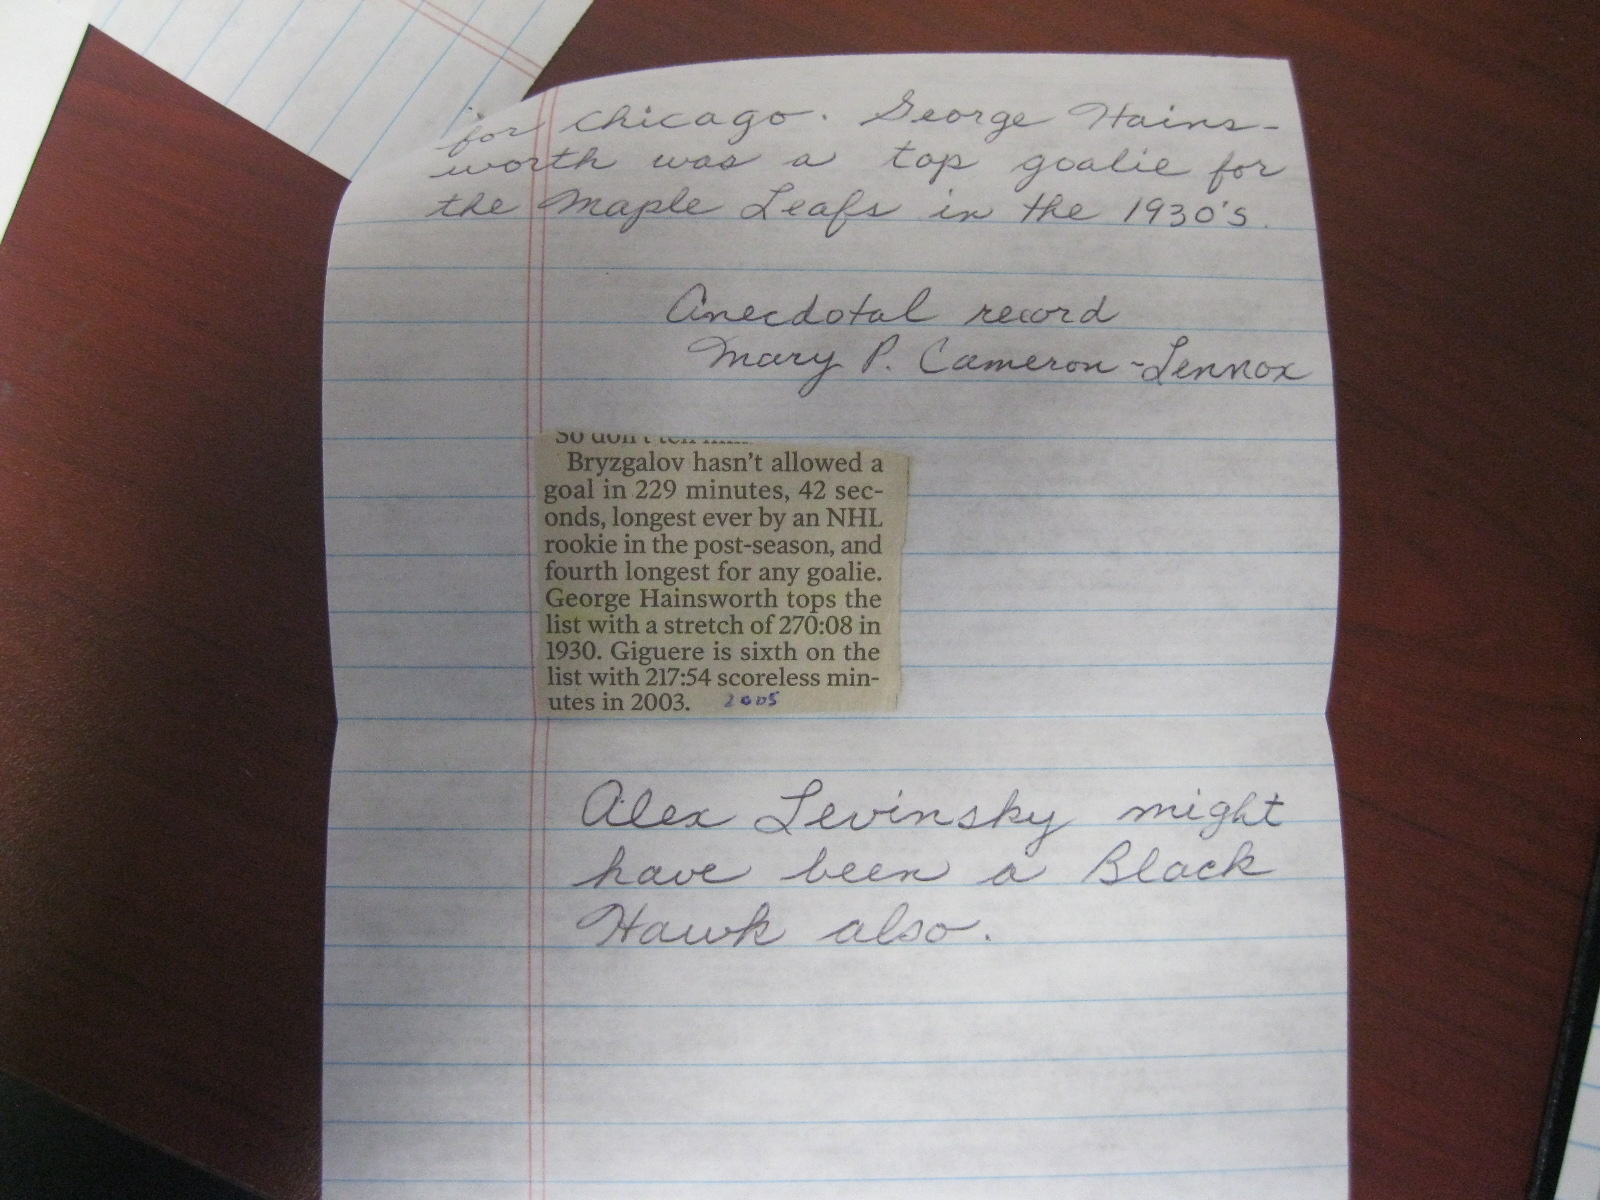 for Chicago. George Hains-
worth was a top goalie for
the Maple Leafs in the 1930's.
Anecdotal record
Mary P. Cameron-Lennox
So don't
Bryzgalov hasn't allowed a
goal in 229 minutes, 42 sec-
onds, longest ever by an NHL
rookie in the post-season, and
fourth longest for any goalie.
George Hainsworth tops the
list with a stretch of 270:08 in
1930. Giguere is sixth on the
list with 217:54 scoreless min-
utes in 2003. 2005
Alex Levinsky might
have been a Black
Hawk also.